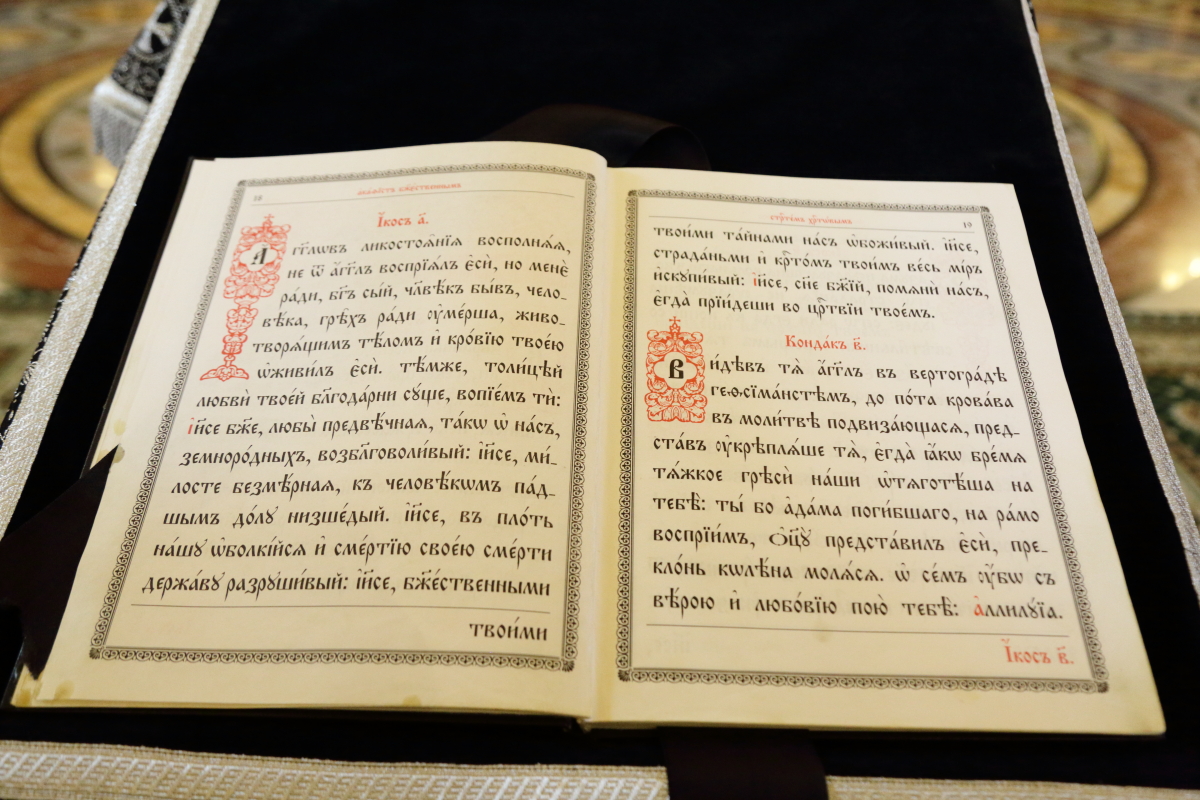 18
а҆ка́ѳїстъ бж҃е́ственнымъ
І҆́косъ а҃.
А҆́гг҃лѡвъ ликостоѧ́нїѧ восполнѧ́ѧ,
не ѿ а҆́гг҃лъ воспрїѧ́лъ є҆сѝ, но менє̀
ра́ди, бг҃ъ сы́й, чл҃вѣ́къ бы́въ, чело-
вѣ́ка, грѣ̑хъ ра́ди ᲂу҆ме́рша, живо-
творѧ́щимъ тѣ́ломъ и҆ кро́вїю твое́ю
ѡ҆живи́лъ є҆сѝ. тѣ́мже, толи́цѣй
любвѝ твое́й бл҃года́рни сꙋ́ще, вопїе́мъ тѝ:
і҆и҃се бж҃е, любы̀ предвѣ́чнаѧ, та́кѡ ѡ҆ на́съ,
земноро́дныхъ, возбл҃говоли́вый: і҆и҃се, ми́-
лосте безмѣ́рнаѧ, къ человѣ́кѡмъ па́д-
шымъ до́лꙋ низше́дый. і҆и҃се, въ пло́ть
на́шꙋ ѡ҆болкі́йсѧ и҆ сме́ртїю свое́ю сме́рти
держа́вꙋ разрꙋши́вый: і҆и҃се, бж҃е́ственными
твои́ми
стрⷭ҇те́мъ хрⷭ҇то́вымъ
19
твои́ми та́йнами на́съ ѡ҆божи́вый. і҆и҃се,
страда́ньми и҆ крⷭ҇то́мъ твои́мъ ве́сь мі́ръ
и҆скꙋпи́вый: і҆и҃се, сн҃е бж҃їй, помѧнѝ на́съ,
є҆гда̀ прїи́деши во црⷭ҇твїи твое́мъ.
Конда́къ в҃.
Ви́дѣвъ тѧ̀ а҆́гг҃лъ въ вертогра́дѣ
геѳсїма́нстѣмъ, до по́та крова́ва
въ моли́твѣ подвиза́ющасѧ, пред-
ста́въ ᲂу҆крѣплѧ́ше тѧ̀, є҆гда̀ ꙗ҆́кѡ бре́мѧ
тѧ́жкое грѣсѝ на́ши ѡ҆тѧготѣ́ша на
тебѣ̀: ты́ бо а҆да́ма поги́бшаго, на ра́мо
воспрїи́мъ, ѻ҆ц҃ꙋ̀ предста́вилъ є҆сѝ, пре-
кло́нь кѡлѣ́на молѧ́сѧ. ѡ҆ се́мъ ᲂу҆́бѡ съ
вѣ́рою и҆ любо́вїю пою̀ тебѣ̀: а҆ллилꙋ́їа.
І҆́косъ в҃.